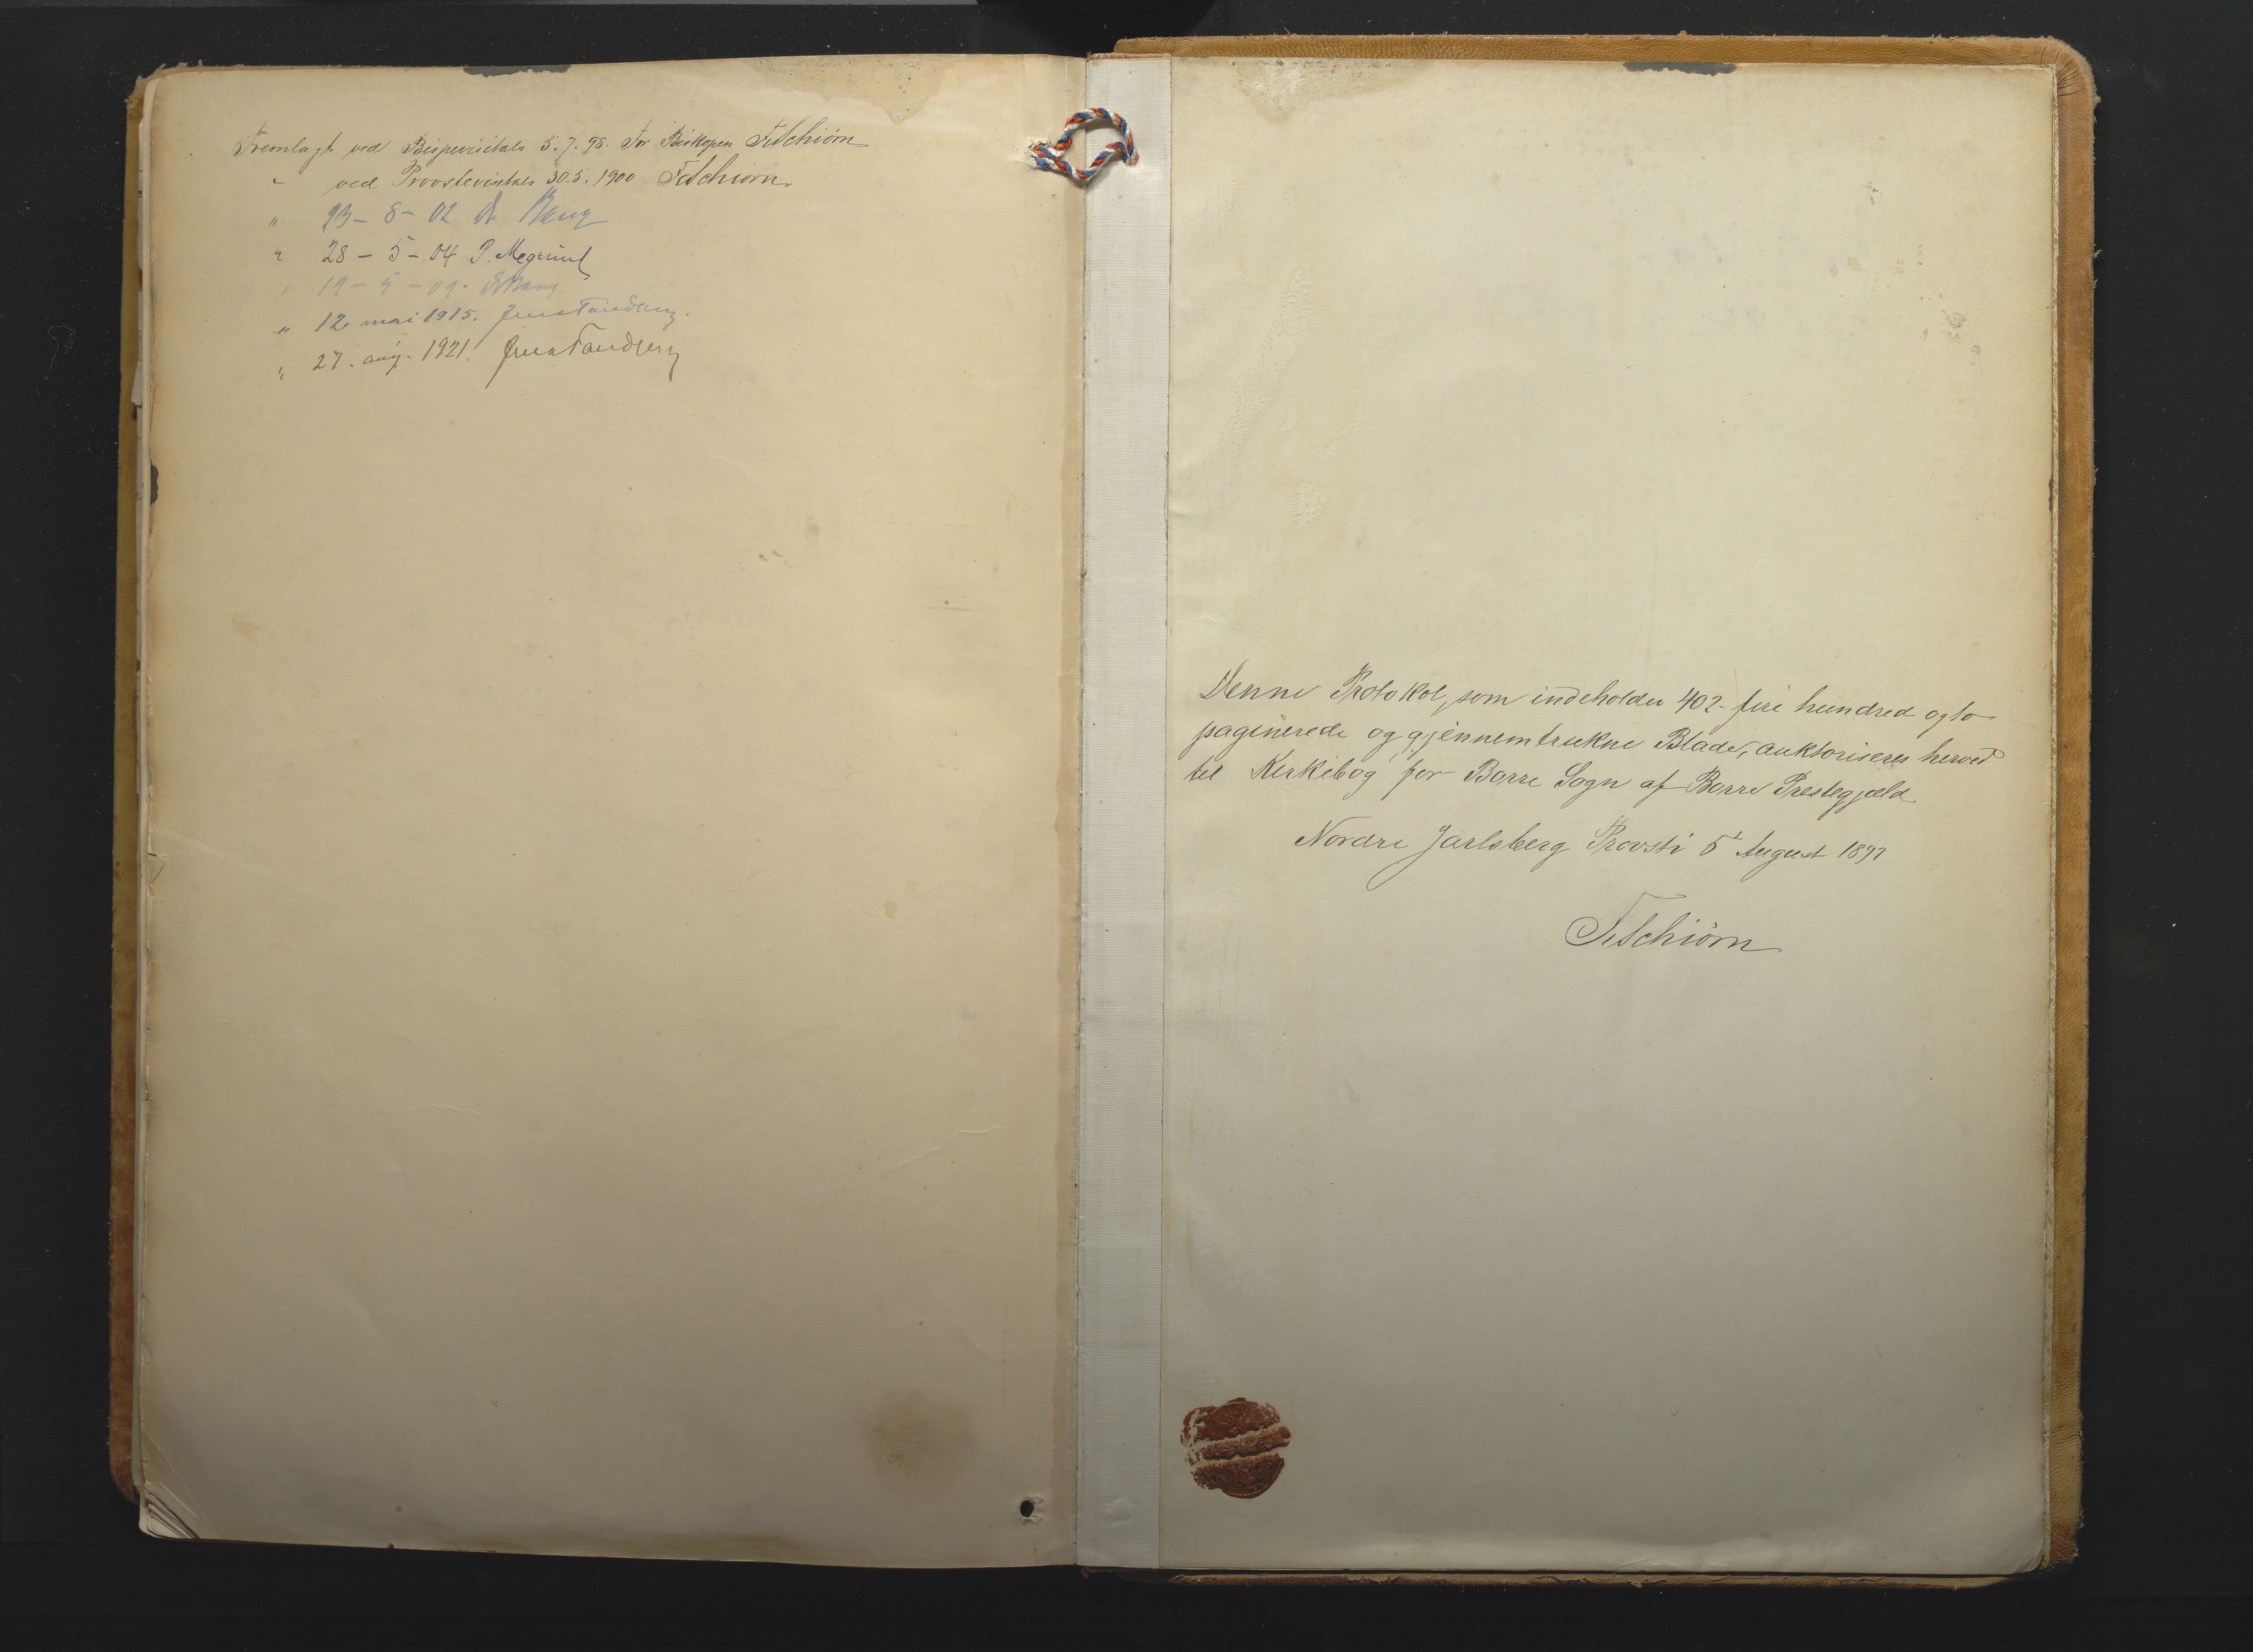 Fremlagt ved Bispevisitats 5.7.98. For Biskopen F. Schiørn
" ved Provstevisitats 30.5.1900 F. Schiørn.
" 23 - 8 - 02 Bang
" 28 - 5 - 04 P.
" 19 - 5 - 09. Bang
" 12 mai 1915. Jens Tandberg.
" 27. aug. 1921. Jens Tandberg
Denne Protokol, som indeholder 402 - fire hundred og to
paginerede og gjennemtrukne Blade, auktoriseres herved
til Kirkebog for Borre Sogn af Borre Prestegjæld
Nordre Jarlsberg Provsti 5t August 1897
F. Schiørn